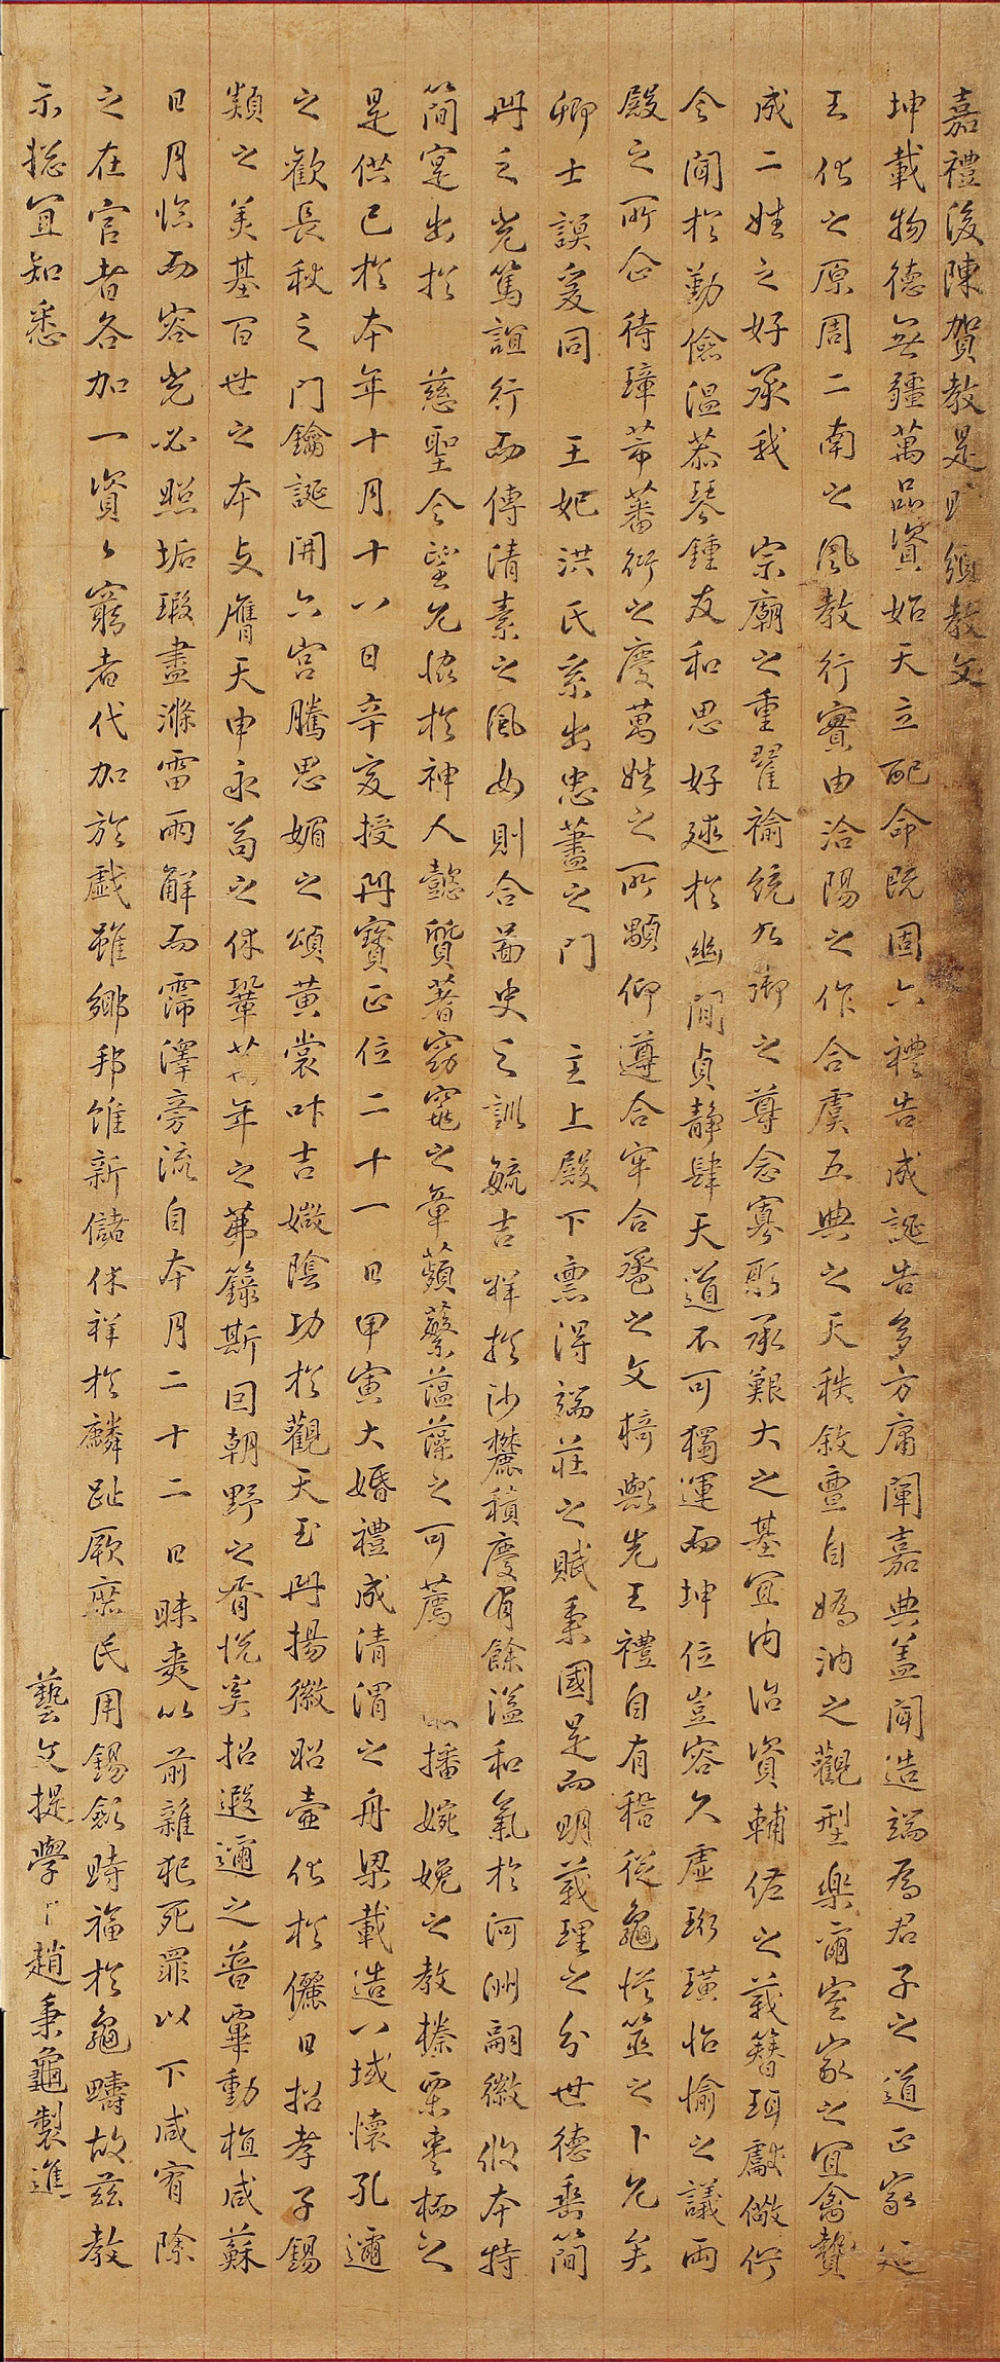 嘉禮後陳賀教是日頒教文
坤載物德無疆萬品資始天立配命旣固六禮告成誕告多方庸闡嘉典盖聞造端爲君子之道正家
王化之原周二南之風教行實由洽陽之作合虞五典之天秩敘亶自嬀汭之觀型樂爾室家之宜禽贄
成二姓之好承我　宗廟之重翟褕統九御之尊念寡躬承艱大之基宜內治資輔佐之義簪珥獻儆何
今聞於勤儉溫恭琴鍾友和思好逑於幽閒貞靜肆天道不可獨運而坤位豈容久虛珩璜怡愉之議兩
殿之所企待璋芾蕃衍之慶萬姓之所顒仰遵合牢合巹之文猗歟先王禮自有稽從龜從筮之卜允矣
卿士謨爰同　王妃洪氏系出忠藎之門　主上殿下禀得端莊之賦秉國是而明義理之分世德垂簡
冊之光篤誼行而傳淸素之風女則合圖史之訓毓吉祥於沙麓積慶有餘溢和氣於河洲嗣徽攸本特
簡寔出於　慈聖令望允協於神人懿質著窈窕之章蘋蘩薀藻之可薦播婉娩之教榛栗棗栭之
是供已於本年十月十八日辛亥授冊寶正位二十一日甲寅大婚禮成淸渭之舟梁載造八域懷孔邇
之歡長秋之門鑰誕開六宮騰思媚之頌黃裳叶吉媺陰功於觀天玉冊揚徽昭壼化於儷日招孝子錫
類之美基百世之本支膺天申永荀之休鞏萬年之茀籙斯回朝野之胥悅奚招遐邇之普覃動植咸蘇
日月臨而容光必照垢瑕盡滌雷雨解而霈澤旁流自本月二十二日昧爽以前雜犯死罪以下咸宥除
之在官者各加一資資窮者代加於戲雖鄉邦惟新儲休祥於麟趾厥庶民用錫斂時福於龜疇故玆教
示摠宜知悉
藝文提學臣趙秉龜製進